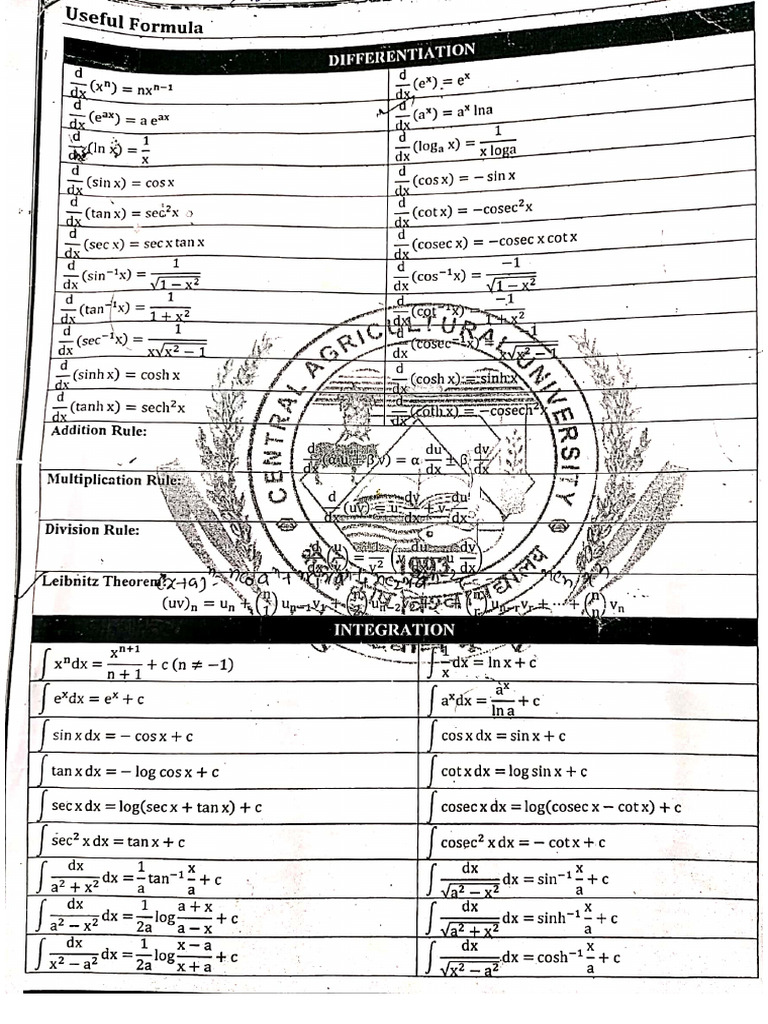 Useful Formula
DIFFERENTIATION
d/dx (xⁿ) = nxⁿ⁻¹
d/dx (eˣ) = eˣ
d/dx (eᵃˣ) = a eᵃˣ
d/dx (aˣ) = aˣ lna
d/dx (ln x) = 1/x
d/dx (logₐ x) = 1/(x loga)
d/dx (sin x) = cos x
d/dx (cos x) = − sin x
d/dx (tan x) = sec²x
d/dx (cot x) = −cosec²x
d/dx (sec x) = sec x tan x
d/dx (cosec x) = −cosec x cot x
d/dx (sin⁻¹x) = 1/√(1 − x²)
d/dx (cos⁻¹x) = −1/√(1 − x²)
d/dx (tan⁻¹x) = 1/(1 + x²)
d/dx (cot⁻¹x) = −1/(1 + x²)
d/dx (sec⁻¹x) = 1/(x√(x² − 1))
d/dx (cosec⁻¹x) = −1/(x√(x² − 1))
d/dx (sinh x) = cosh x
d/dx (cosh x) = sinh x
d/dx (tanh x) = sech²x
d/dx (coth x) = −cosech²x
Addition Rule:
d/dx (α u + β v) = α du/dx + β dv/dx
Multiplication Rule:
d/dx (uv) = u dv/dx + v du/dx
Division Rule:
d/dx (u/v) = 1/v² (v du/dx − u dv/dx)
Leibnitz Theorem:
(uv)ₙ = uₙ + (n 1) uₙ₋₁v₁ + uₙ₋₂ (n r) uₙ₋ᵣvᵣ + ⋯ + (n n) vₙ
CENTRAL AGRICULTURAL UNIVERSITY
INTEGRATION
∫ xⁿdx = xⁿ⁺¹/(n + 1) + c (n ≠ −1)
∫ 1/x dx = ln x + c
∫ eˣdx = eˣ + c
∫ aˣdx = aˣ/ln a + c
∫ sin x dx = − cos x + c
∫ cos x dx = sin x + c
∫ tan x dx = − log cos x + c
∫ cot x dx = log sin x + c
∫ sec x dx = log(sec x + tan x) + c
∫ cosec x dx = log(cosec x − cot x) + c
∫ sec² x dx = tan x + c
∫ cosec² x dx = − cot x + c
∫ dx/(a² + x²) dx = 1/a tan⁻¹ x/a + c
∫ dx/√(a² − x²) dx = sin⁻¹ x/a + c
∫ dx/(a² − x²) dx = 1/2a log (a + x)/(a − x) + c
∫ dx/√(a² + x²) dx = sinh⁻¹ x/a + c
∫ dx/(x² − a²) dx = 1/2a log (x − a)/(x + a) + c
∫ dx/√(x² − a²) dx = cosh⁻¹ x/a + c